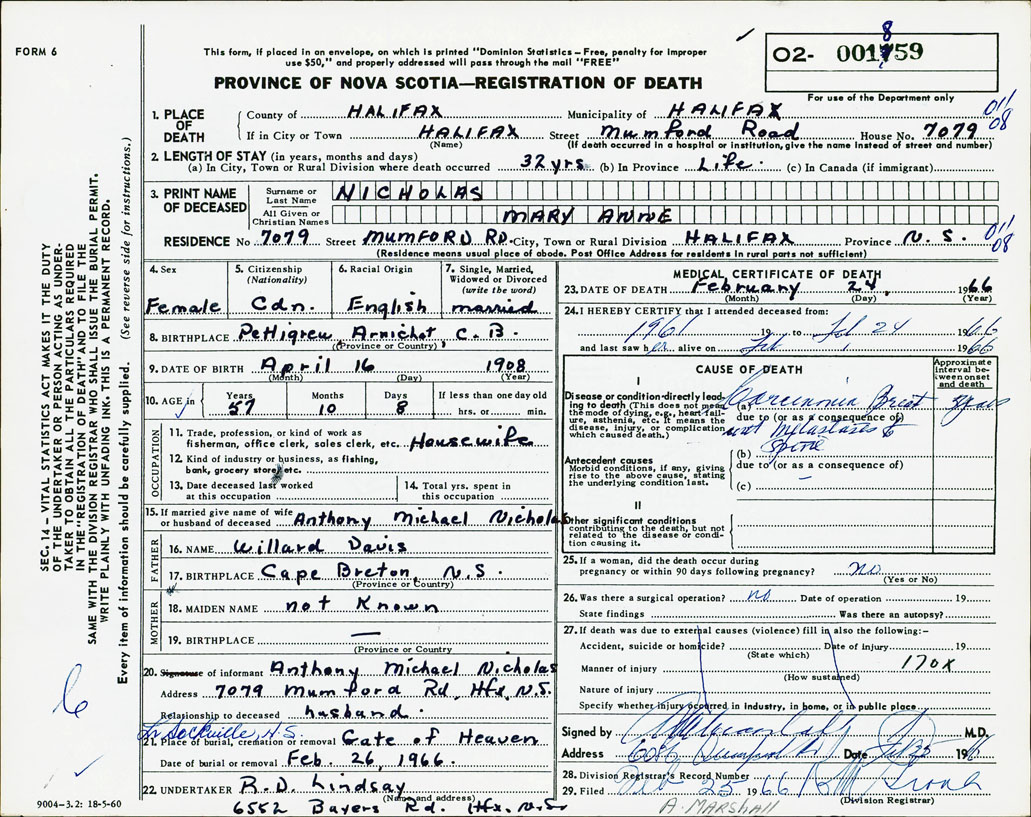 FORM 6
This form, if placed in an envelope, on which is printed "Dominion Statistics – Free, penalty for improper
use $50," and properly addressed will pass through the mail "FREE"
PROVINCE OF NOVA SCOTIA—REGISTRATION OF DEATH
02- 001859
For use of the Department only
011
08
1. PLACE OF DEATH
County of HALIFAX Municipality of HALIFAX
If in City or Town HALIFAX Street Mumford Road House No. 7079
(Name) (If death occurred in a hospital or institution, give the name instead of street and number)
2. LENGTH OF STAY (in years, months and days)
(a) In City, Town or Rural Division where death occurred 32 yrs (b) In Province Life. (c) In Canada (if immigrant)
3. PRINT NAME OF DECEASED
Surname or Last Name NICHOLAS
All Given or Christian Names MARY ANNE
RESIDENCE No 7079 Street MUMFORD RD. City, Town or Rural Division HALIFAX Province N. S.
011
08
(Residence means usual place of abode. Post Office Address for residents in rural parts not sufficient)
4. Sex
Female
5. Citizenship (Nationality)
Cdn.
6. Racial Origin
English
7. Single, Married, Widowed or Divorced (write the word)
married
8. BIRTHPLACE Pettigrew Arnichot C. B.
(Province or Country)
9. DATE OF BIRTH April 16 1908
(Month) (Day) (Year)
10. AGE in Years Months Days If less than one day old
57 10 8 hrs. or min.
OCCUPATION
11. Trade, profession, or kind of work as
fisherman, office clerk, sales clerk, etc. Housewife
12. Kind of industry or business, as fishing,
bank, grocery store, etc.
13. Date deceased last worked
at this occupation
14. Total yrs. spent in
this occupation
15. If married give name of wife
or husband of deceased Anthony Michael Nicholas
FATHER
16. NAME Willard Davis
17. BIRTHPLACE Cape Breton, N.S.
(Province or Country)
MOTHER
18. MAIDEN NAME not Known
19. BIRTHPLACE —
(Province or Country
20. Signature of informant Anthony Michael Nicholas
Address 7079 Mumford Rd, Hfx, N.S.
Relationship to deceased husband.
Lr Sackville, N.S.
21. Place of burial, cremation or removal Gate of Heaven
Date of burial or removal Feb. 26, 1966.
22. UNDERTAKER R. D. Lindsay
(Name and address)
6552 Bayers Rd. Hfx. N.S.
MEDICAL CERTIFICATE OF DEATH
23. DATE OF DEATH February 24, 1966
(Month) (Day) (Year)
24. I HEREBY CERTIFY that I attended deceased from:
1961 19 to Feb 24 1966
and last saw her alive on Feb 1966
CAUSE OF DEATH
Approximate interval between onset and death
I
Disease or condition directly leading to death (This does not mean the mode of dying, e.g., heart failure, asthenia, etc. It means the disease, injury, or complication which caused death.)
(a) Carcinoma Breast years
due to (or as a consequence of)
Metastases to
(b) Spine
Antecedent causes
Morbid conditions, if any, giving rise to the above cause, stating the underlying condition last.
due to (or as a consequence of)
(c)
II
Other significant conditions
contributing to the death, but not related to the disease or condition causing it.
25. If a woman, did the death occur during
pregnancy or within 90 days following pregnancy? no
(Yes or No)
26. Was there a surgical operation? no Date of operation 19
State findings Was there an autopsy?
27. If death was due to external causes (violence) fill in also the following:–
Accident, suicide or homicide? Date of injury 19
(State which)
Manner of injury 170X
(How sustained)
Nature of injury
Specify whether injury occurred in industry, in home, or in public place
Signed by M.D.
Address 6086 Date Feb 25 196
28. Division Registrar's Record Number
29. Filed Feb 25 1966
(Division Registrar)
A. MARSHALL
SEC. 14 – VITAL STATISTICS ACT MAKES IT THE DUTY
OF THE UNDERTAKER OR PERSON ACTING AS UNDER-
TAKER TO OBTAIN ALL THE PARTICULARS REQUIRED
IN THE "REGISTRATION OF DEATH" AND TO FILE THE
SAME WITH THE DIVISION REGISTRAR WHO SHALL ISSUE THE BURIAL PERMIT.
WRITE PLAINLY WITH UNFADING INK. THIS IS A PERMANENT RECORD.
Every item of information should be carefully supplied. (See reverse side for instructions.)
6
9004–3.2: 18-5-60